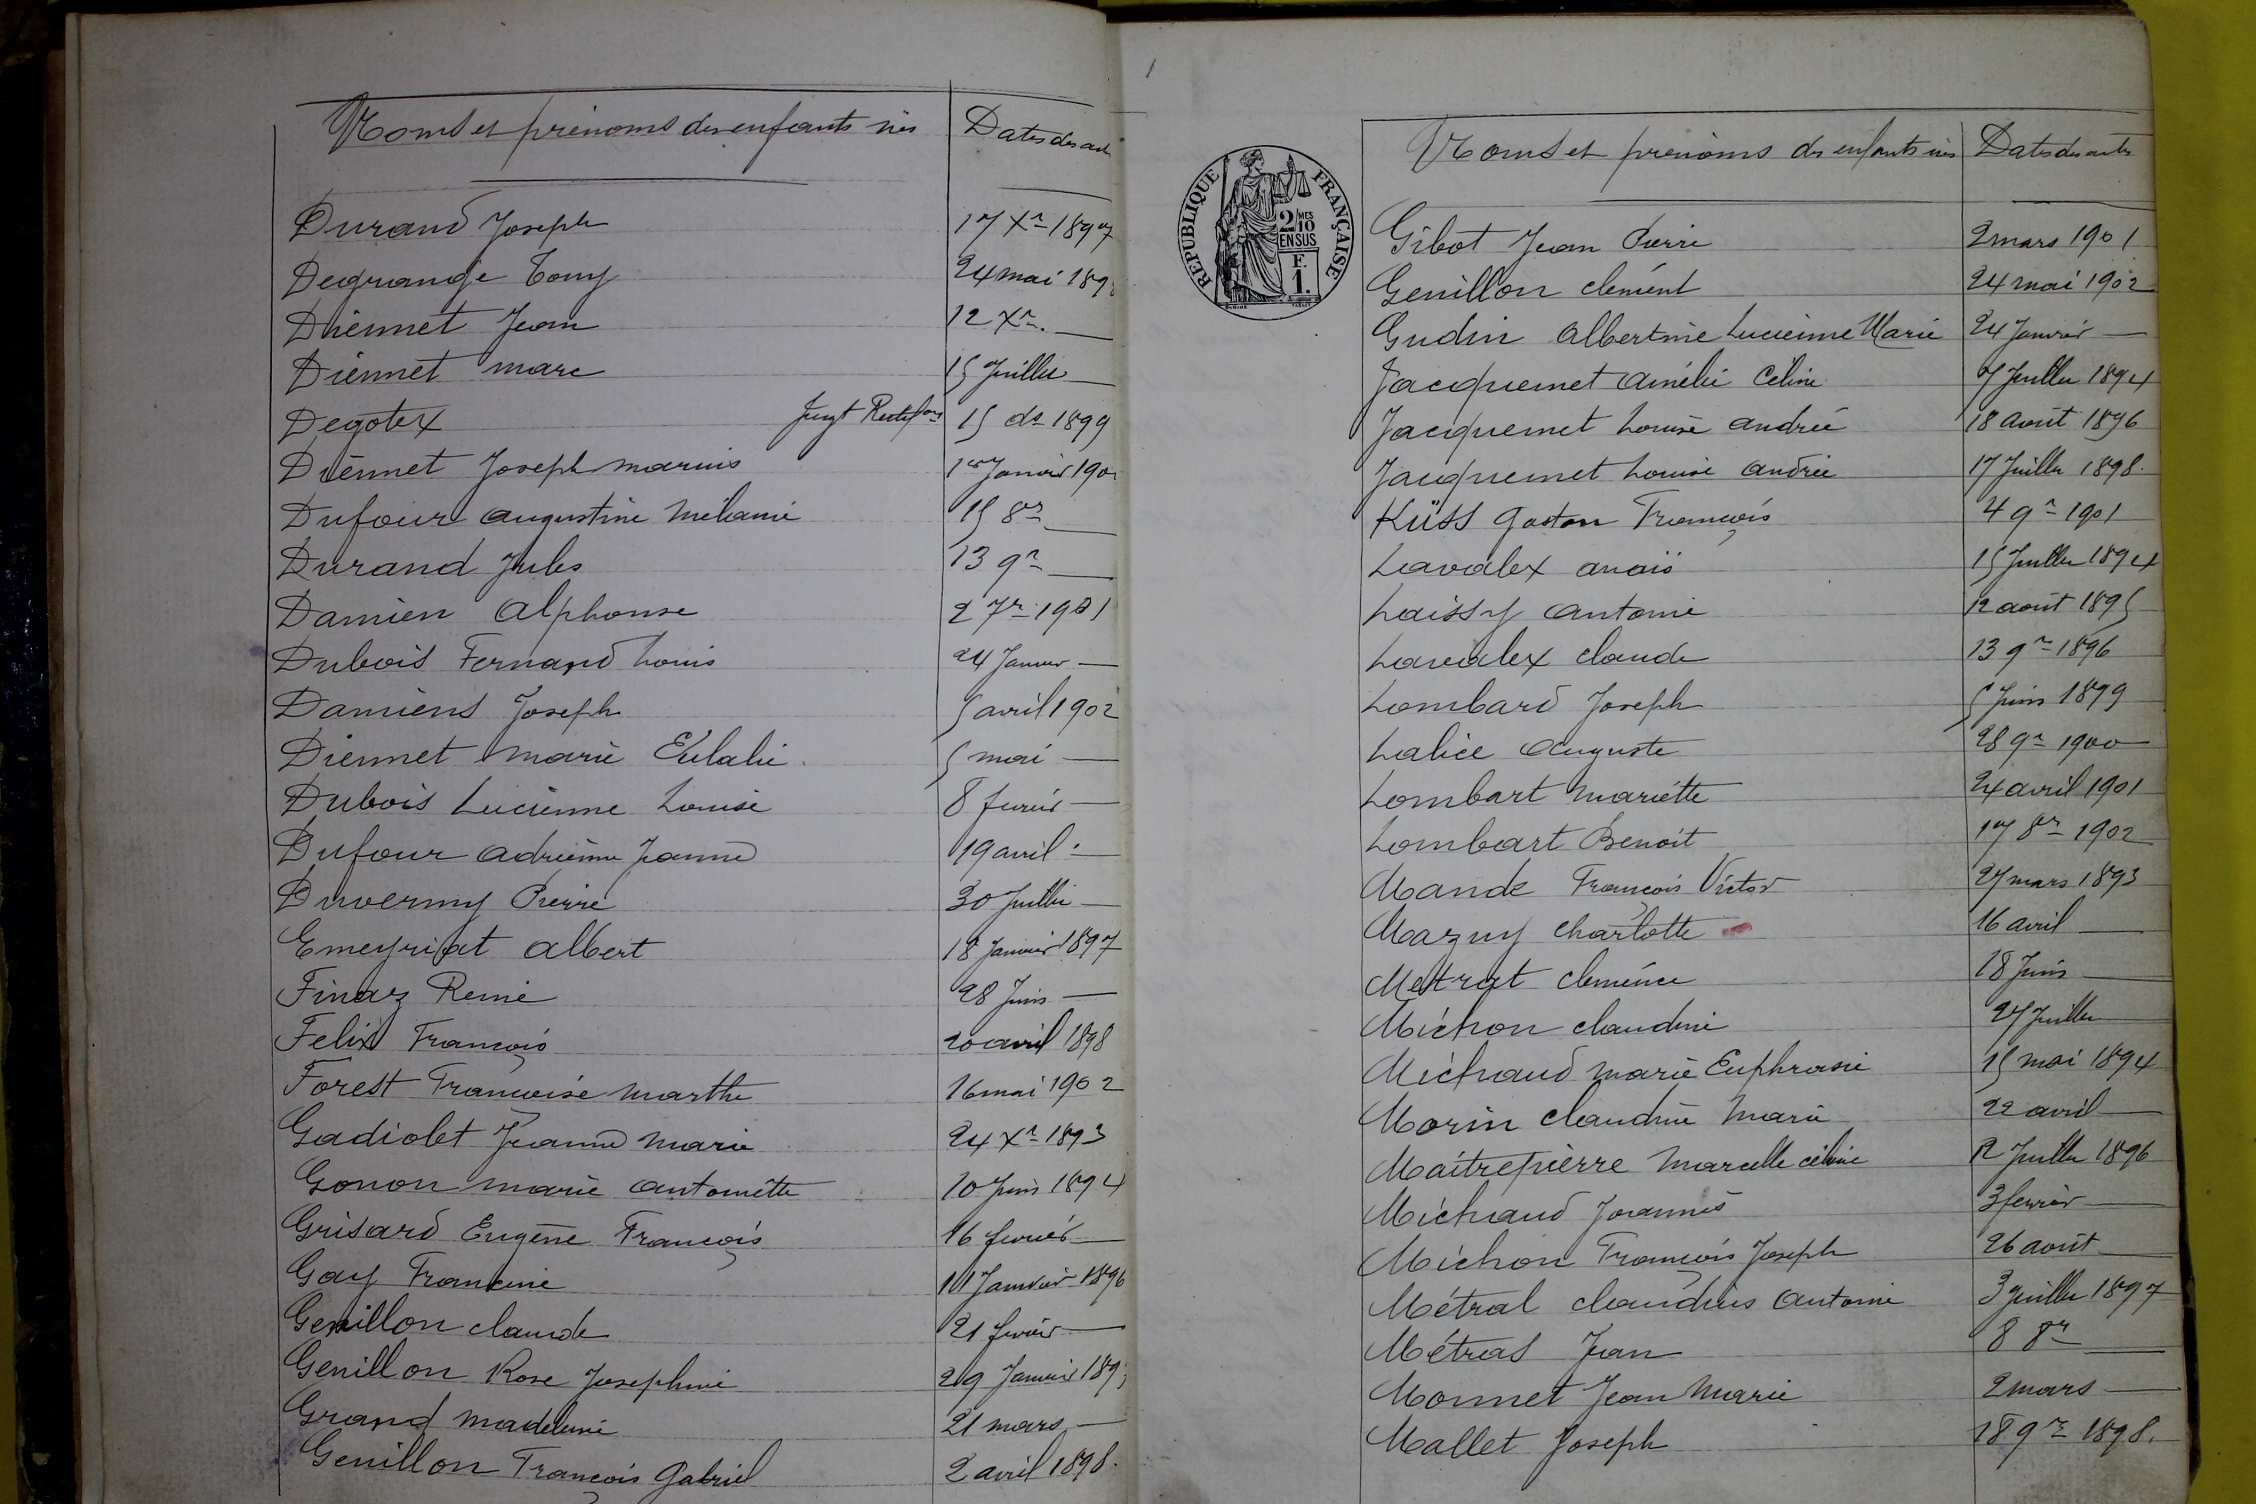 Noms et prénoms des enfants nés Dates des act
Durand Joseph 17 Xr 1897
Degrange Tony 24 mai 189
Diennet Jean 12 Xr —
Diennet marc 15 Juillet —
Degotex Jugt Rectifon 15 do 1899
Diennet Joseph marius 1er Janvier 190
Dufour augustine mélanie 15 8r —
Durand Jules 13 9r —
Damien alphonse 2 7r 1901
Dubois Fernand Louis 24 Janvier —
Damiens Joseph 5 avril 1902
Diennet marie Eulalie 5 mai —
Dubois Lucienne Louise 8 fevrier —
Dufour adrienne Jeanne 19 avril —
Duverny Pierre 30 Juillet —
Emeyriat albert 18 Janvier 1897
Finaz Remi 28 Juin —
Felix François 20 avril 1898
Forest Françoise marthe 16 mai 1902
Gadiolet Jeanne marie 24 Xr 1893
Gonon marie antoinette 10 Juin 1894
Grisard Eugène François 16 fevrier —
Gay Francine 11 Janvier 1896
Genillon claude 21 fevrier —
Genillon Rose Josephine 29 Janvier 189
Grand madeleine 21 mars —
Genillon François Gabriel 2 avril 1898.
RÉPUBLIQUE FRANÇAISE
2/10 MES
EN SUS
F.
1.
Noms et prénoms des enfants nés Dates des actes
Gibot Jean Pierre 2 mars 1901
Genillon clément 24 mai 1902
Gudin albertine Lucienne Marie 24 Janvier —
Jacquemet amélie Céline 7 Juillet 1894
Jacquemet Louise andrée 18 août 1896
Jacquemet Louise andrée 17 Juillet 1898.
Küss gaston François 4 9r 1901
Lavalex anaïs 15 Juillet 1894
Laissy antoine 12 août 1895
Lavalex claude 13 9r 1896
Lombard Joseph 5 Juin 1899
Lalice auguste 28 9r 1900
Lombart mariette 24 avril 1901
Lombart Benoit 17 8r 1902
Mande François Victor 27 mars 1893
Mazuy charlotte 16 avril —
Metrat clemence 18 Juin —
Michon claudine 27 Juillet —
Michaud marie Euphrasie 15 mai 1894
Morin claudine marie 22 avril —
Maitrepierre marcelle céline 12 Juillet 1896
Michaud Joannès 3 fevrier —
Michon François Joseph 26 août —
Métral claudius antoine 3 Juillet 1897
Métras Jean 8 8r —
Monnet Jean marie 2 mars —
Mallet Joseph 18 9r 1898.